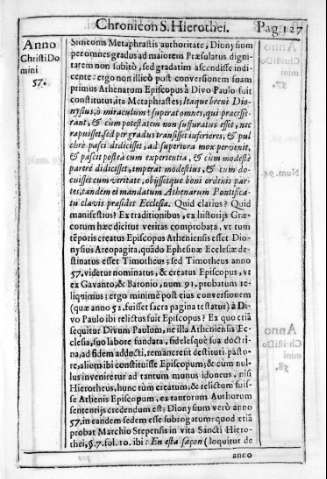 Chronicon S. Hierothei. Pag. 127
Anno
Christi Do
mini
57.
Simeonis Metaphrastis authoritate, Dionysium
per omnes gradus ad maiorem Præsulatus digni-
tatem non subitò, sed gradatim ascendisse indi-
cente: ergo non illicò post conversionem suam
primus Athenarum Episcopus à Divo Paulo fuit
constitutus, ita Metaphrastes: Itaque brevi Dio-
nysius, ò miraculum! superat omnes, qui præcesse-
rant, & cum potestatem non suffuratus esset, nec
rapuisset, sed per gradus transisset inferiores, & pul
chrè pasci didicisset, ad superiora mox pervenit,
& pascit postea cum experientia, & cum modestè
parere didicisset, imperat modestius, & cum do-
cuisset cum veritate, obijsset que boni ordinis par-
tes, tandem ei mandatum Athenarum Pontificatus
clavis præsidet Ecclesiæ. Quid clarius? Quid
manifestius? Ex traditionibus, ex historijs Græ-
corum hæc dicitur veritas comprobata, vt tum
tẽporis creatus Episcopus Atheniensis esset Dio-
nysius Areopagita, quãdo Ephesinæ Ecclesiæ de-
stinatus esset Timotheus; sed Timotheus anno
57. videtur nominatus, & creatus Episcopus, vt
ex Gavanto, & Baronio, num. 91. probatum re-
liquimus: ergo minimè post eius conversionem
(quæ anno 52. fuisset sacra pagina testatur) à Di-
vo Paulo ibi relictus fuit Episcopus? Ex quo etiã
sequitur Divum Paulom, ne illa Atheniensis Ec-
clesia, suo labore fundata, fidelesque sua doctri-
na, ad fidem adducti, remanerent destituti pasto-
re, alium ibi constituisse Episcopum; & cum nul-
lus inveniretur ad tantum munus idoneus, nisi
Hierotheus, hunc tùm creatum, & relictum fuis-
se Athenis Episcopum, ex tantorum Authorum
sententijs credendum est; Dionysium verò anno
57. in eandem sedem esse subrogatum: quod etiã
probat Marchio Stepensis in vita Sancti Hierо-
thei, §. 7. fol. 10. ibi: En esta saçon (loquitur de
anno